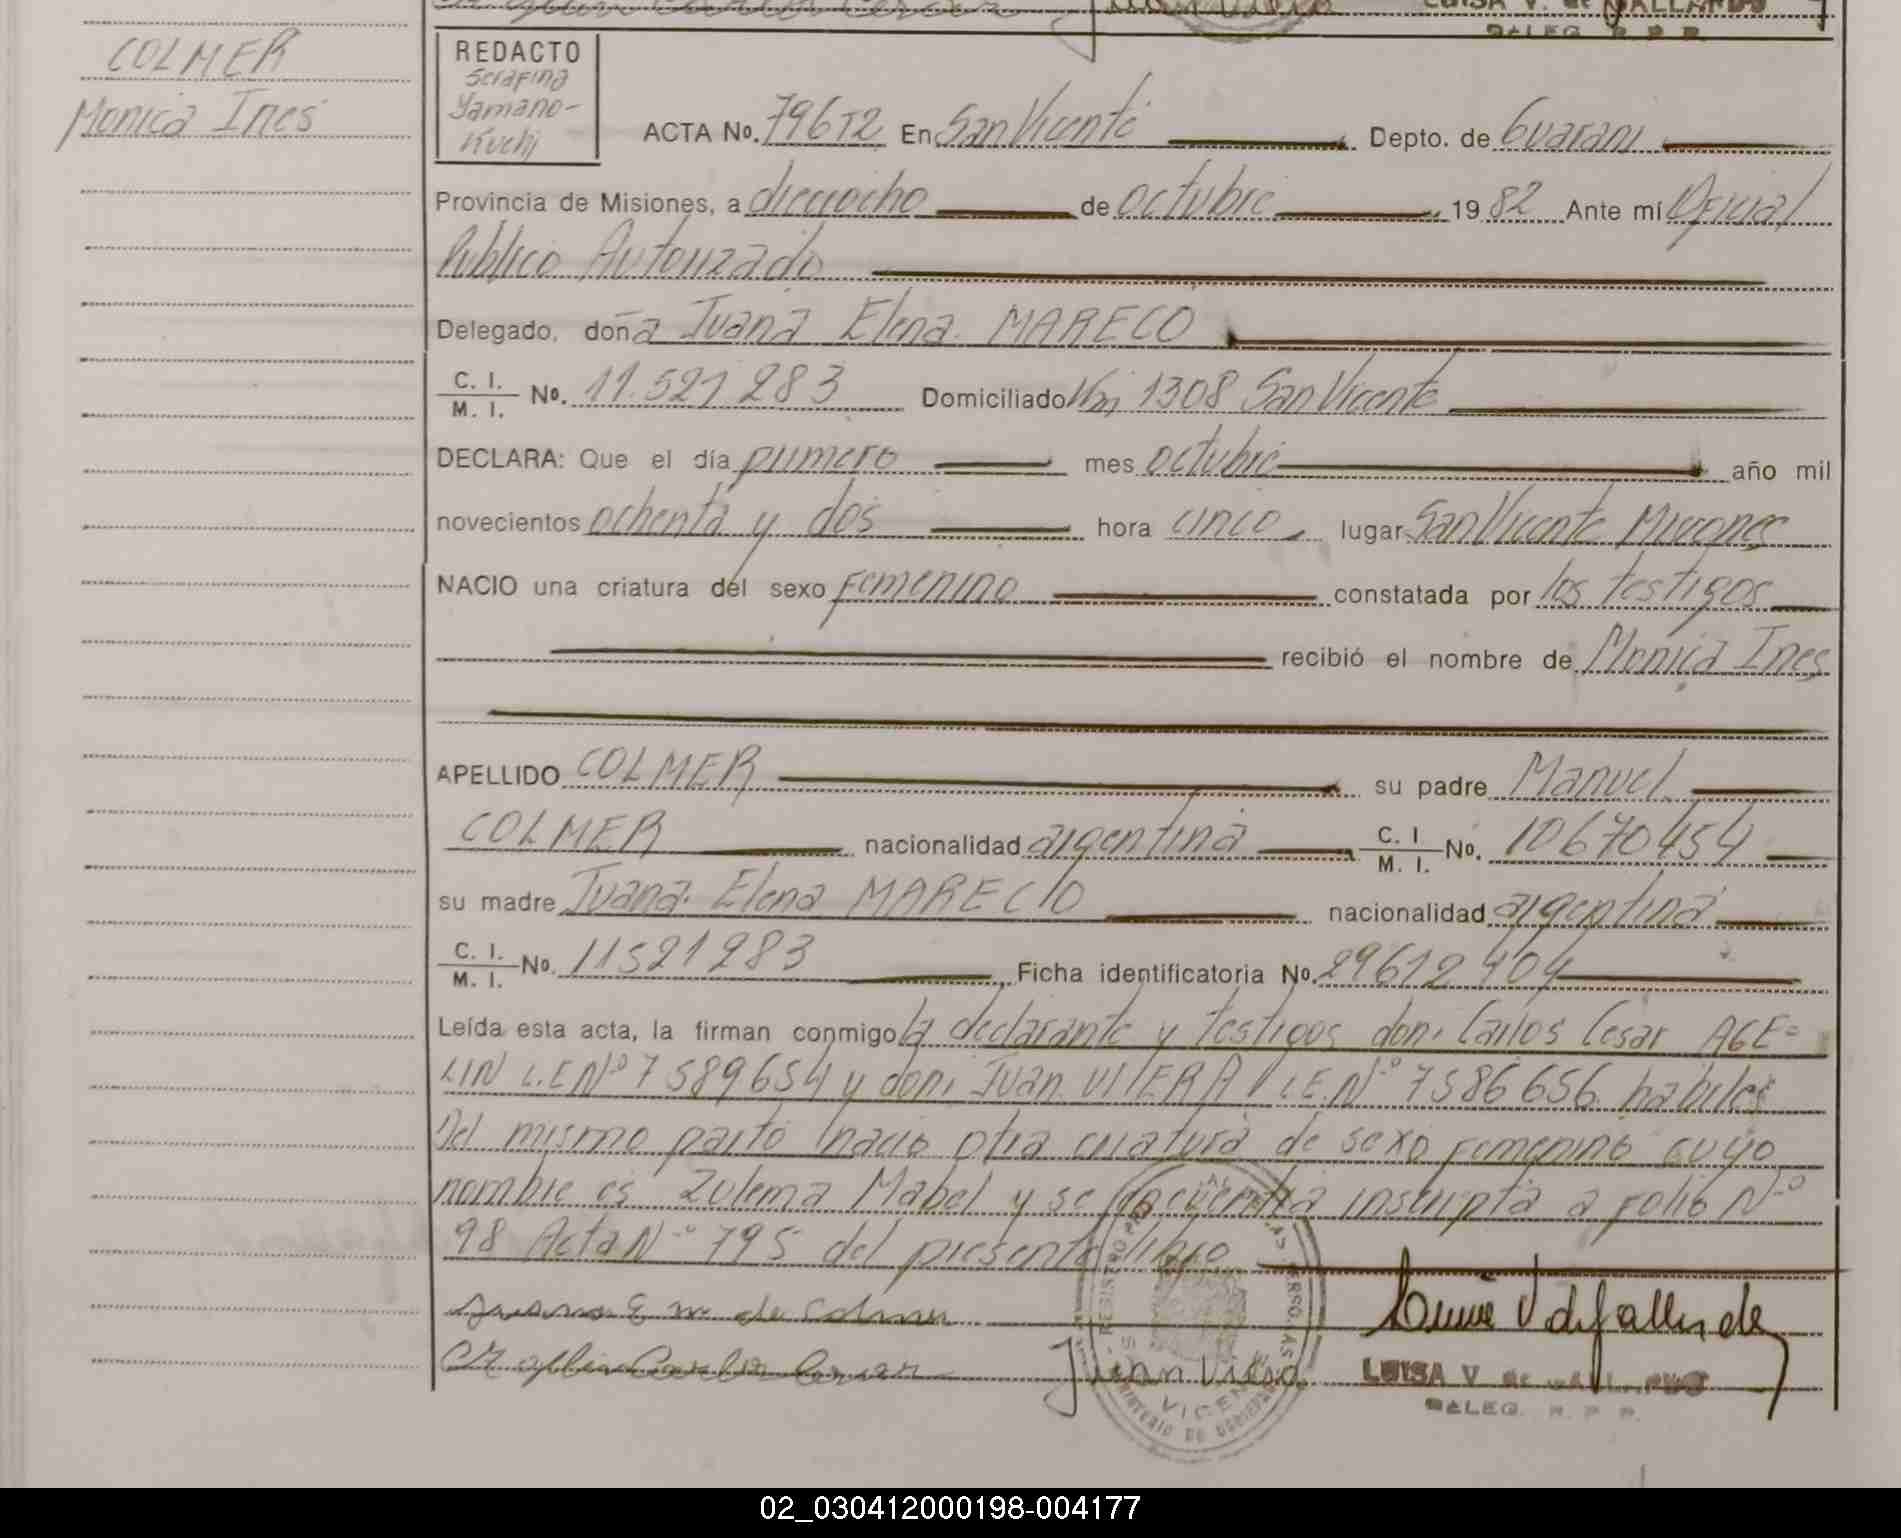 LUISA V. de GALLARDO
DALEG. R. P. P.
COLMER
Monica Ines
REDACTO
Serafina
Yamano-
Kuchi
ACTA No. 796T2 En San Vicente Depto. de Guarani
Provincia de Misiones, a dieciocho de octubre 1982 Ante mí Oficial
Público Autorizado
Delegado, doña Juana Elena MARECO
C. I.
M. I. No. 11.521 283 Domiciliado Km 1308 San Vicente
DECLARA: Que el día primero mes octubre año mil
novecientos ochenta y dos hora cinco lugar San Vicente Misiones
NACIO una criatura del sexo femenino constatada por los testigos
recibió el nombre de Monica Ines
APELLIDO COLMER su padre Manuel
COLMER nacionalidad argentina C. I. M. I. No. 10670454
su madre Juana Elena MARECO nacionalidad argentina
C. I.
M. I. No. 11521283 Ficha identificatoria No. 29612404
Leída esta acta, la firman conmigo la declarante y testigos don: Carlos Cesar AGE=
LIN L.E Nº 7589654 y don: Juan VIERA L.E. Nº 7586656 habiles
Del mismo parto nacio otra criatura de sexo femenino cuyo
nombre es Zulema Mabel y se encuentra inscripta a folio Nº
98 Acta Nº 795 del presente libro
Juana E M. de Colmer
Juan Viera
LUISA V. de GALLARDO
DALEG. R. P. P.
02_030412000198-004177